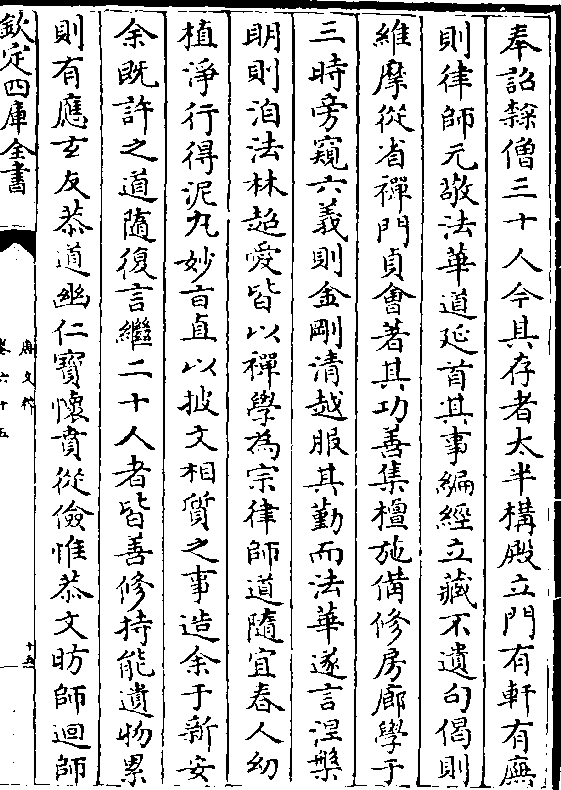 奉詔隸僧三十人今其存者太半構殿立門有軒有廡
則律師元敬法華道延首其事編經立藏不遺句偈則
維摩從省禪門貞會著其功善集檀施備修房廊學于
三時旁窺六義則金剛清越服其勤而法華遂言涅槃
明則洎法林超愛皆以禪學為宗律師道隨宜春人幼
植淨行得泥九妙㫖貞以披文相質之事造余于新安
余既許之道隨復言繼二十人者皆善修持能遺物累
則有應玄友恭道幽仁寶懷賁從儉惟恭文昉師迴師
欽定四庫全書
唐文粹
卷六十五
十五